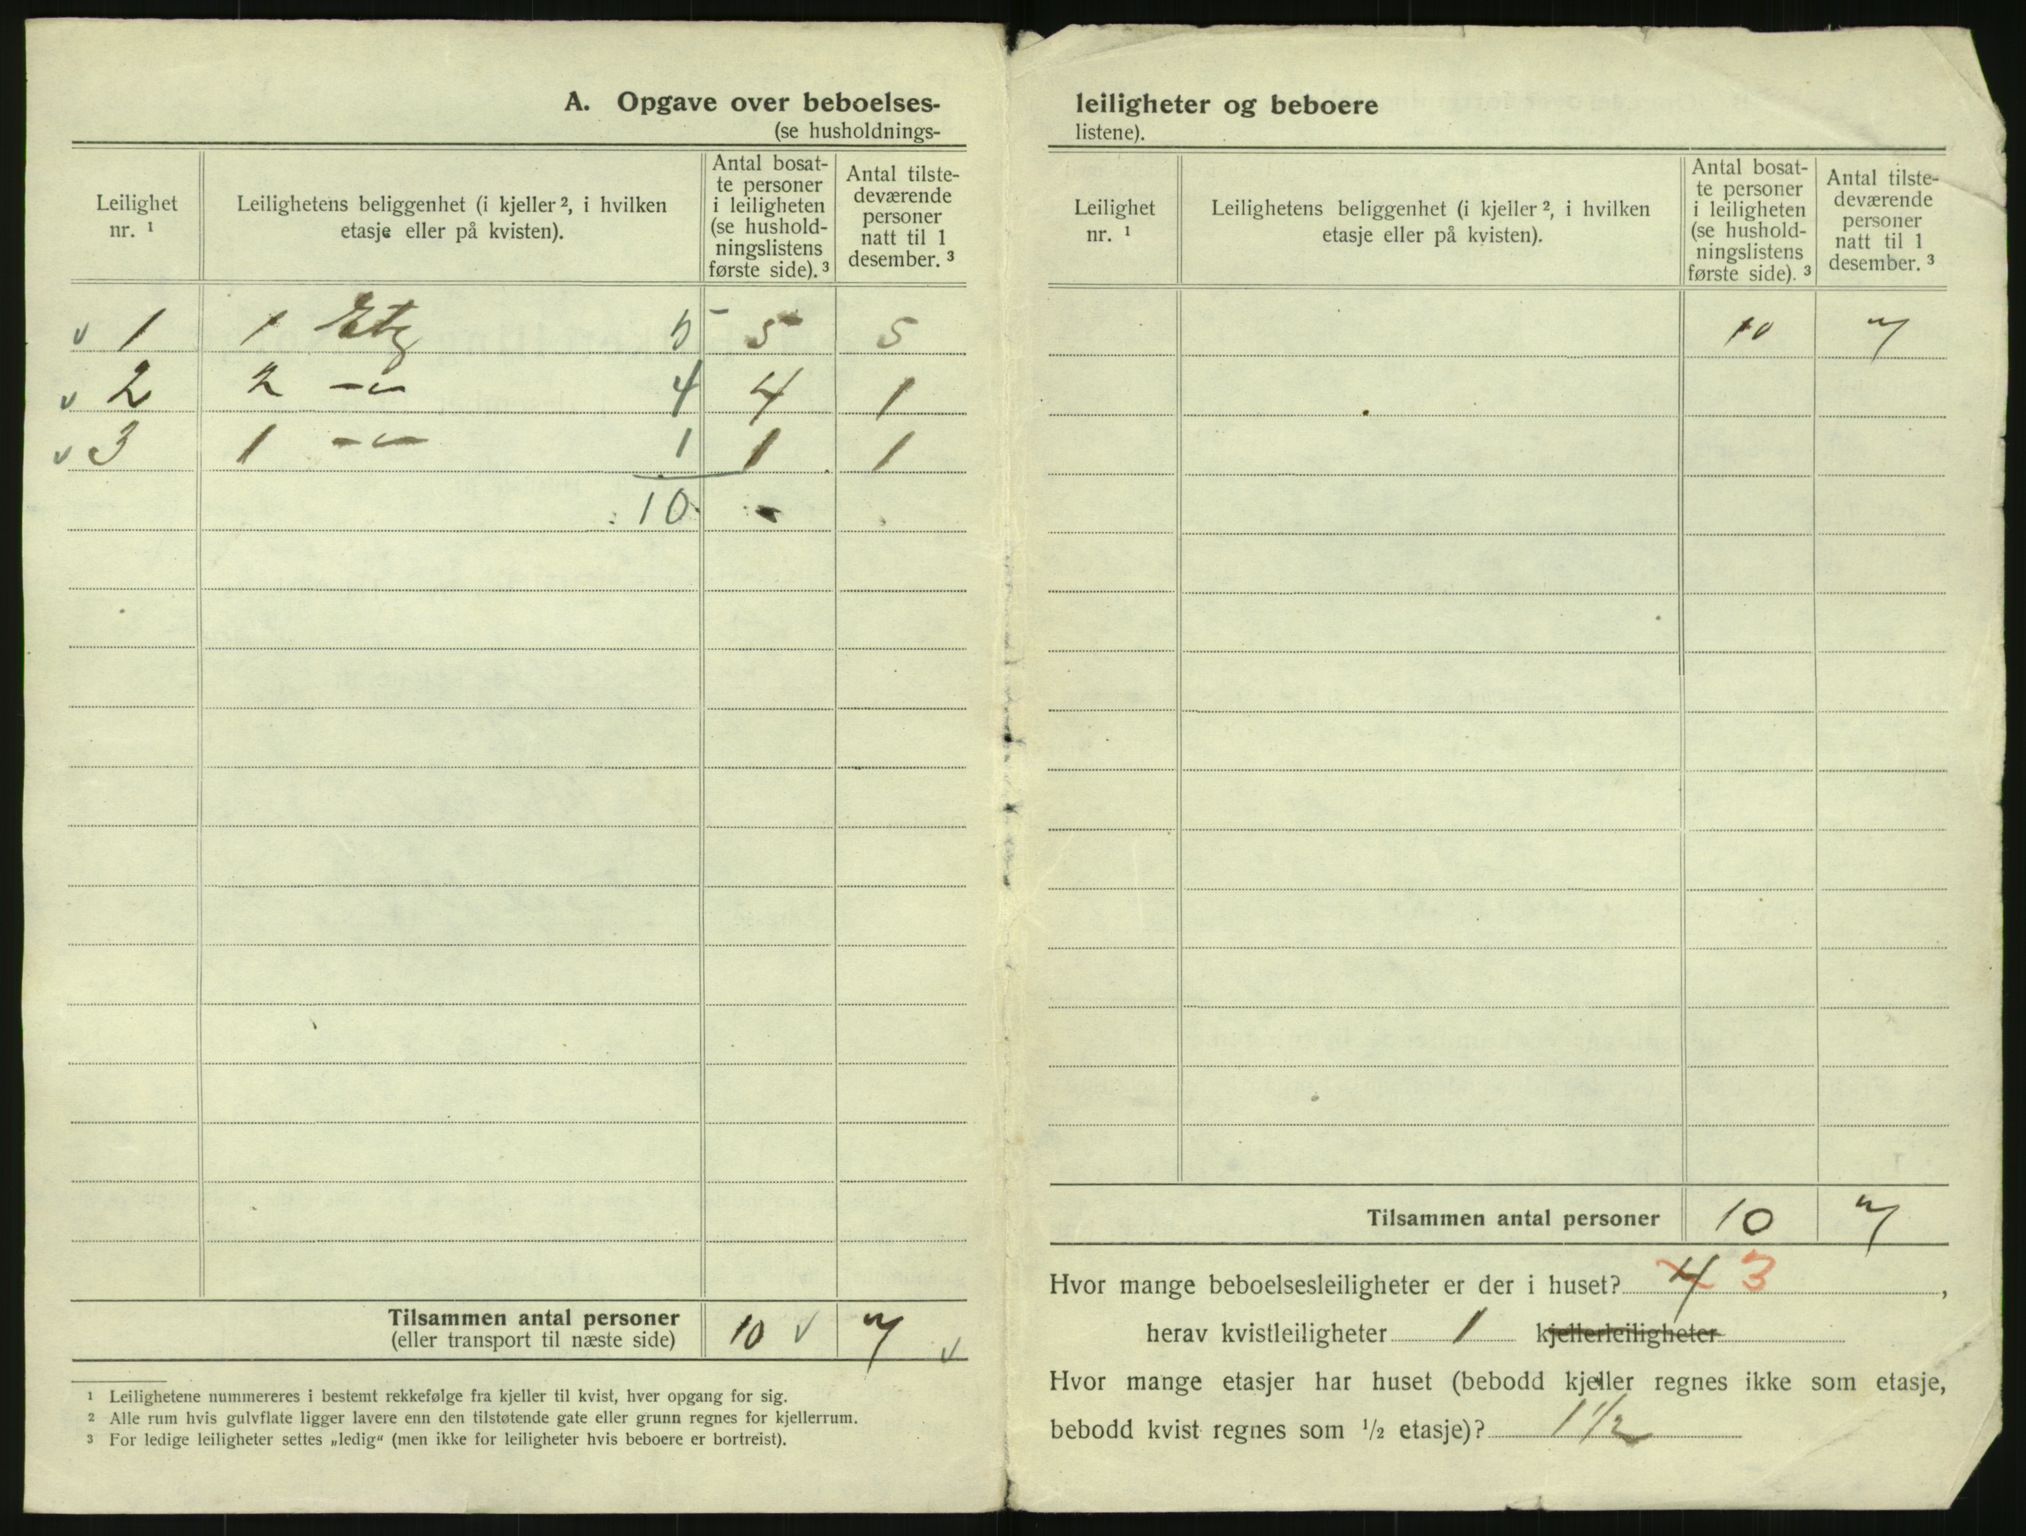 A. Opgave over beboelses-
(se husholdnings-
Leilighet
nr. ¹
Leilighetens beliggenhet (i kjeller ², i hvilken
etasje eller på kvisten).
Antal bosat-
te personer
i leiligheten
(se hushold-
ningslistens
første side). ³
Antal tilste-
deværende
personer
natt til 1
desember. ³
v 1 1 Etg 5 5 5
v 2 2 -"- 4 4 1
v 3 1 -"- 1 1 1
10
Tilsammen antal personer
(eller transport til næste side)
10 v 7 v
¹ Leilighetene nummereres i bestemt rekkefølge fra kjeller til kvist, hver opgang for sig.
² Alle rum hvis gulvflate ligger lavere enn den tilstøtende gate eller grunn regnes for kjellerrum.
³ For ledige leiligheter settes „ledig“ (men ikke for leiligheter hvis beboere er bortreist).
leiligheter og beboere
listene).
Leilighet
nr. ¹
Leilighetens beliggenhet (i kjeller ², i hvilken
etasje eller på kvisten).
Antal bosat-
te personer
i leiligheten
(se hushold-
ningslistens
første side). ³
Antal tilste-
deværende
personer
natt til 1
desember. ³
10 7
Tilsammen antal personer 10 7
Hvor mange beboelsesleiligheter er der i huset? 4 3 ,
herav kvistleiligheter 1 kjellerleiligheter
Hvor mange etasjer har huset (bebodd kjeller regnes ikke som etasje,
bebodd kvist regnes som ½ etasje)? 1 1/2